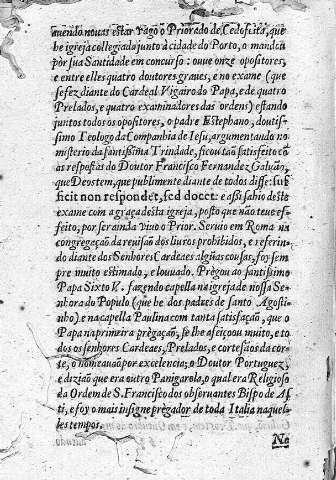 auendo nouas estar vago o Priorado de Cedofeita, que
he igreja collegiada junto à cidade do Porto, o mandou
por sua Santidade em concurso: ouue onze opositores,
e entre elles quatro doutores graues, e no exame (que
se fez diante do Cardeal Vigairo do Papa, e de quatro
Prelados, e quatro examinadores das ordens) estando
juntos todos os opositores, o padre Estephano, doutis-
simo Teologo da Companhia de Iesu, argumentando no
misterio da santissima Trindade, ficou tão satisfeito cõ
as respostas do Doutor Francisco Fernandez Galuão,
que Deos tem, que publimente diante de todos disse:
ficit non respondet, sed docet: e assi sahio deste
exame com a graça desta igreja, posto que não teue ef-
feito, por ser ainda viuo o Prior. Seruio em Roma na
congregação da reuisão dos liuros prohibidos, e referin-
do diante dos Senhores Cardeaes algũas cousas, foy sem
pre muito estimado, e louuado. Prègou ao santissimo
Papa Sixto V. fazendo capella na igreja de nossa Se-
nhora do Populo (que he dos padres de santo Agosti-
nho) e na capella Paulina com tanta satisfação, que o
Papa na primeira prègação, se lhe afeiçoou muito, e to
dos os senhores Cardeaes, Prelados, e cortesãos da cor-
te, o nomeauão por excelencia, o Doutor Portuguez,
e dizião que era outro Panigarola, o qual era Religioso
da Ordem de S. Francisco dos obseruantes Bispo de As-
ti, e foy o mais insigne prègador de toda Italia naquel-
les tempos.
No